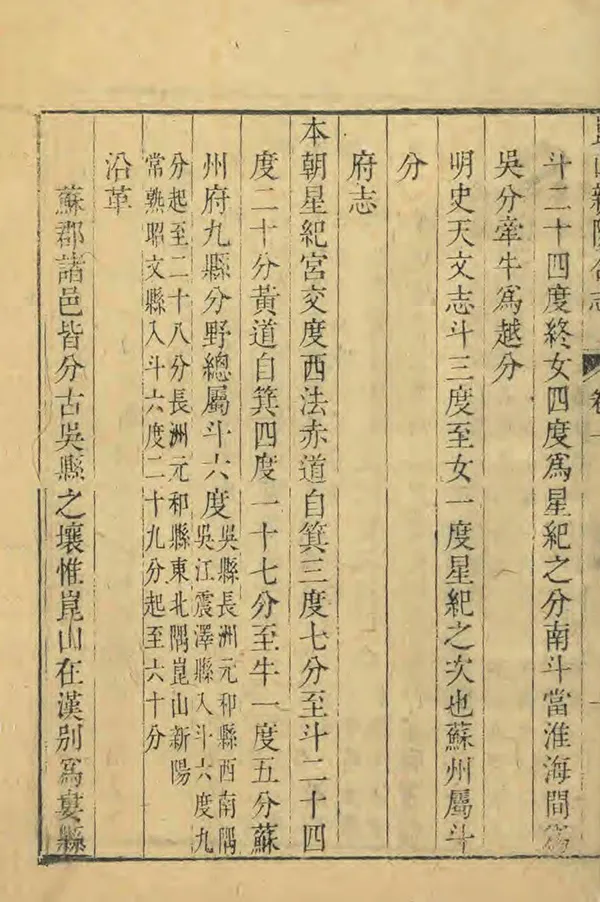 崑山新陽合志 卷一
斗二十四度終女四度爲星紀之分南斗當淮海間爲
吳分牽牛爲越分
明史天文志斗三度至女一度星紀之次也蘇州屬斗
分
府志
本朝星紀宮交度西法赤道自箕三度七分至斗二十四
度二十分黃道自箕四度一十七分至牛一度五分蘇
州府九縣分野總屬斗六度
吳縣長洲元和縣西南隅
吳江震澤縣入斗六度九
分起至二十八分長洲元和縣東北隅崑山新陽
常熟昭文縣入斗六度二十九分起至六十分
沿革
蘇郡諸邑皆分古吳縣之壤惟崑山在漢別爲婁縣